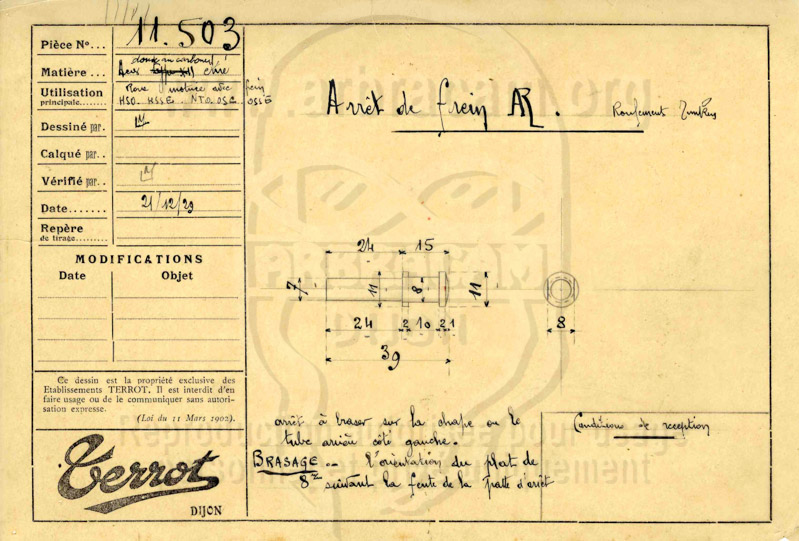 Pièce N°... 11.503
Matière ... doux au carbone
Acier étiré
Utilisation Roue motrice avec frein
principale....... HSO - HSSE - NTO. OSC - OSSE
Dessiné par.
Calqué par..
Vérifié par..
Date....... 21/12/29
Repère
de tirage.........
MODIFICATIONS
Date Objet
Ce dessin est la propriété exclusive des
Etablissements TERROT. Il est interdit d'en
faire usage ou de le communiquer sans autori-
sation expresse.
(Loi du 11 Mars 1902).
Terrot
DIJON
Arrêt de frein AR.
24 15
7 11 8 11
24 2 10 2 1 8
39
arrêt à braser sur la chape ou le
tube arrière côté gauche.
BRASAGE -- l'orientation du plat de
8 suivant la fente de la patte d'arrêt
Conditions de reception
www.arbracam.org
DIJON
Reproduction pour usage
personnel et uniquement